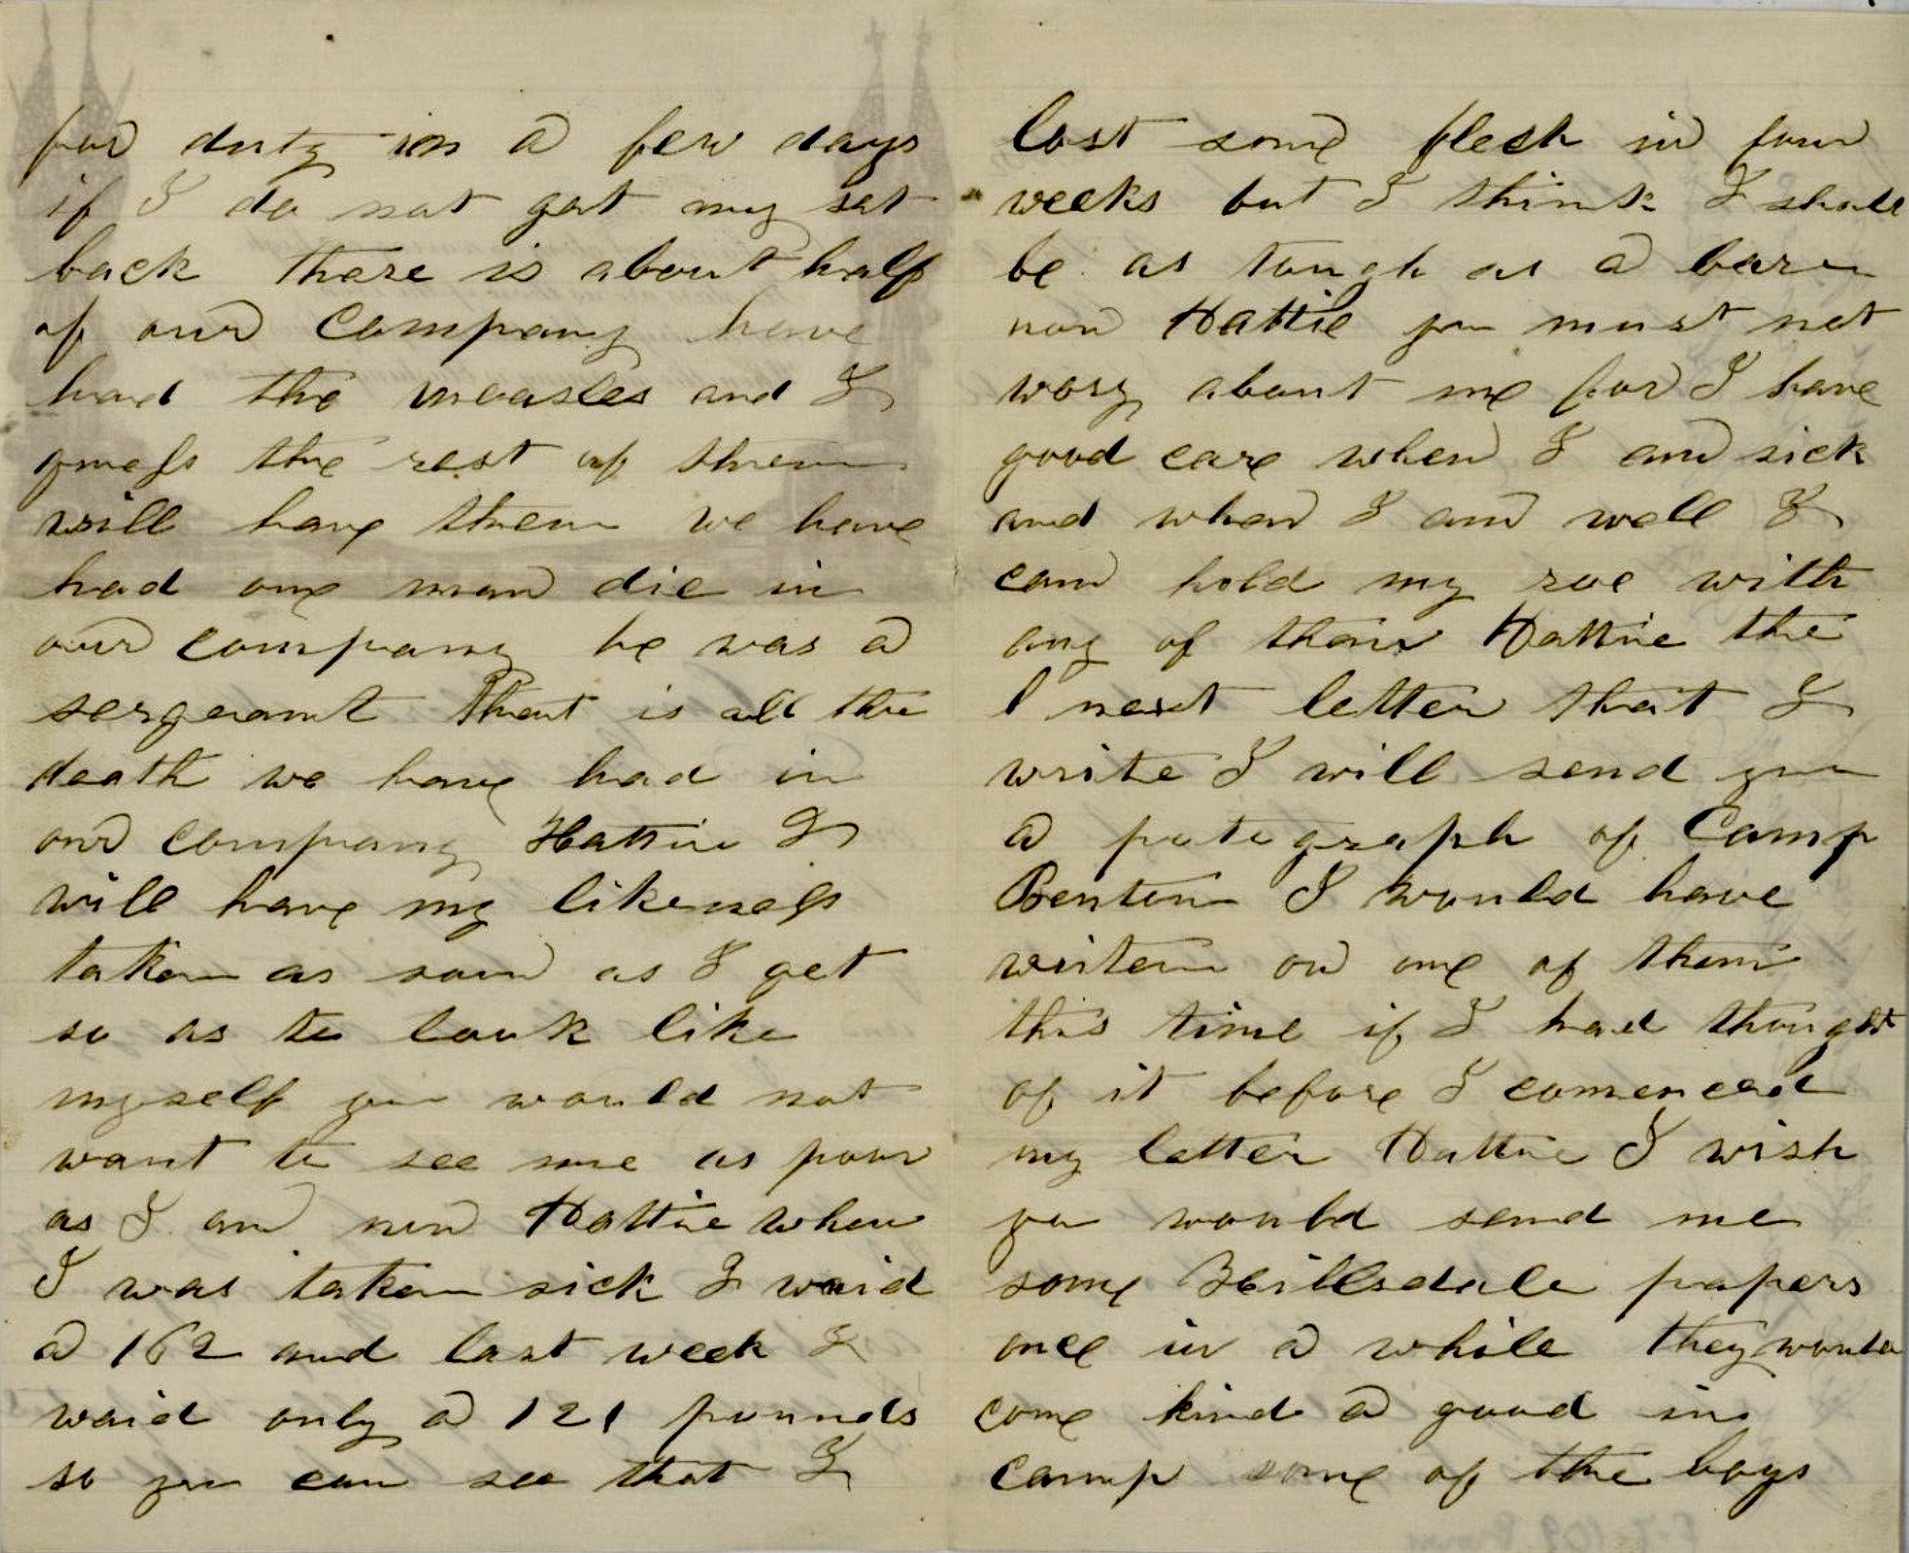 for duty in a few days
if I do not get my set
back there is about half
of our Company have
had the measles and I
guess the rest of them
will have them we have
had one man die in
our company he was a
sergeant That is all the
death we have had in
our company Hattie I
will have my likeness
taken as soon as I get
so as to look like
myself you would not
want to see me as poor
as I am now Hattie when
I was taken sick I waid
a 162 and last week I
waid only a 121 pounds
so you can see that I
lost some flesh in four
weeks but I think I shall
be as tough as a bare
now Hattie you must not
wory about me for I have
good care when I am sick
and when I am well I
can hold my roe with
any of them Hattie the
next letter that I
write I will send you
a potograph of Camp
Benton I would have
writen on one of them
this time if I had thought
of it before I comenced
my letter Hattie I wish
you would send me
some Hillsdale papers
once in a while they would
come kind a good in
camp some of the boys